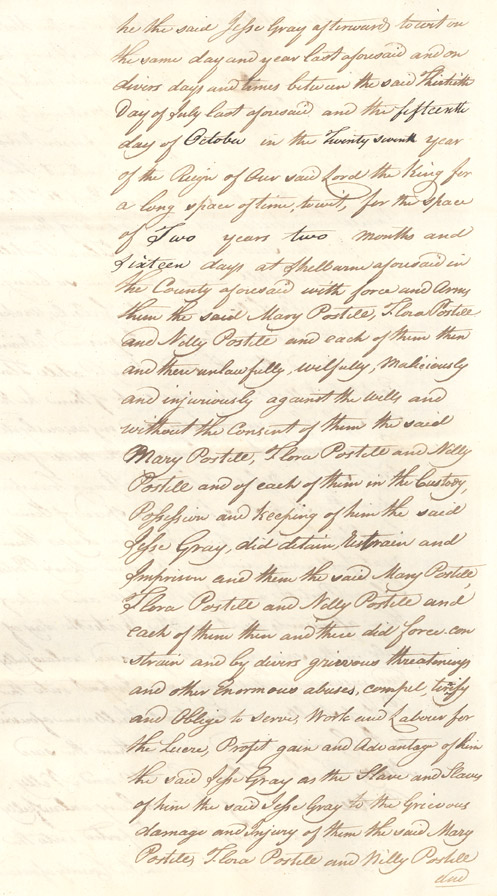 he the said Jesse Gray afterwards towit on
the same day and year last aforesaid and on
divers days and times between the said Thirtieth
Day of July last aforesaid and the fifteenth
day of October in the Twenty seventh year
of the Reign of Our said Lord the King for
a long space of time, towit, for the space
of Two years two months and
sixteen days at Shelburne aforesaid in
the County aforesaid with force and Arms
them the said Mary Postile, Flora Postile
and Nelly Postile and each of them then
and there unlawfully, wilfully, Maliciously
and injuriously against the wills and
without the Consent of them the said
Mary Postile, Flora Postile and Nelly
Postile and of each of them in the Custody,
Possession and keeping of him the said
Jesse Gray, did detain, Restrain and
Imprison and them the said Mary Postile,
Flora Postile and Nelly Postile and
each of them then and there did force con
strain and by divers grievous threatenings
and other Enormous abuses, compel, terrify
and Oblige to serve, Work and Labour for
the Lucre, Profit gain and Advantage of him
the said Jesse Gray as the Slave and Slaves
of him the said Jesse Gray to the Grievous
damage and Injury of them the said Mary
Postile, Flora Postile and Nelly Postile
and